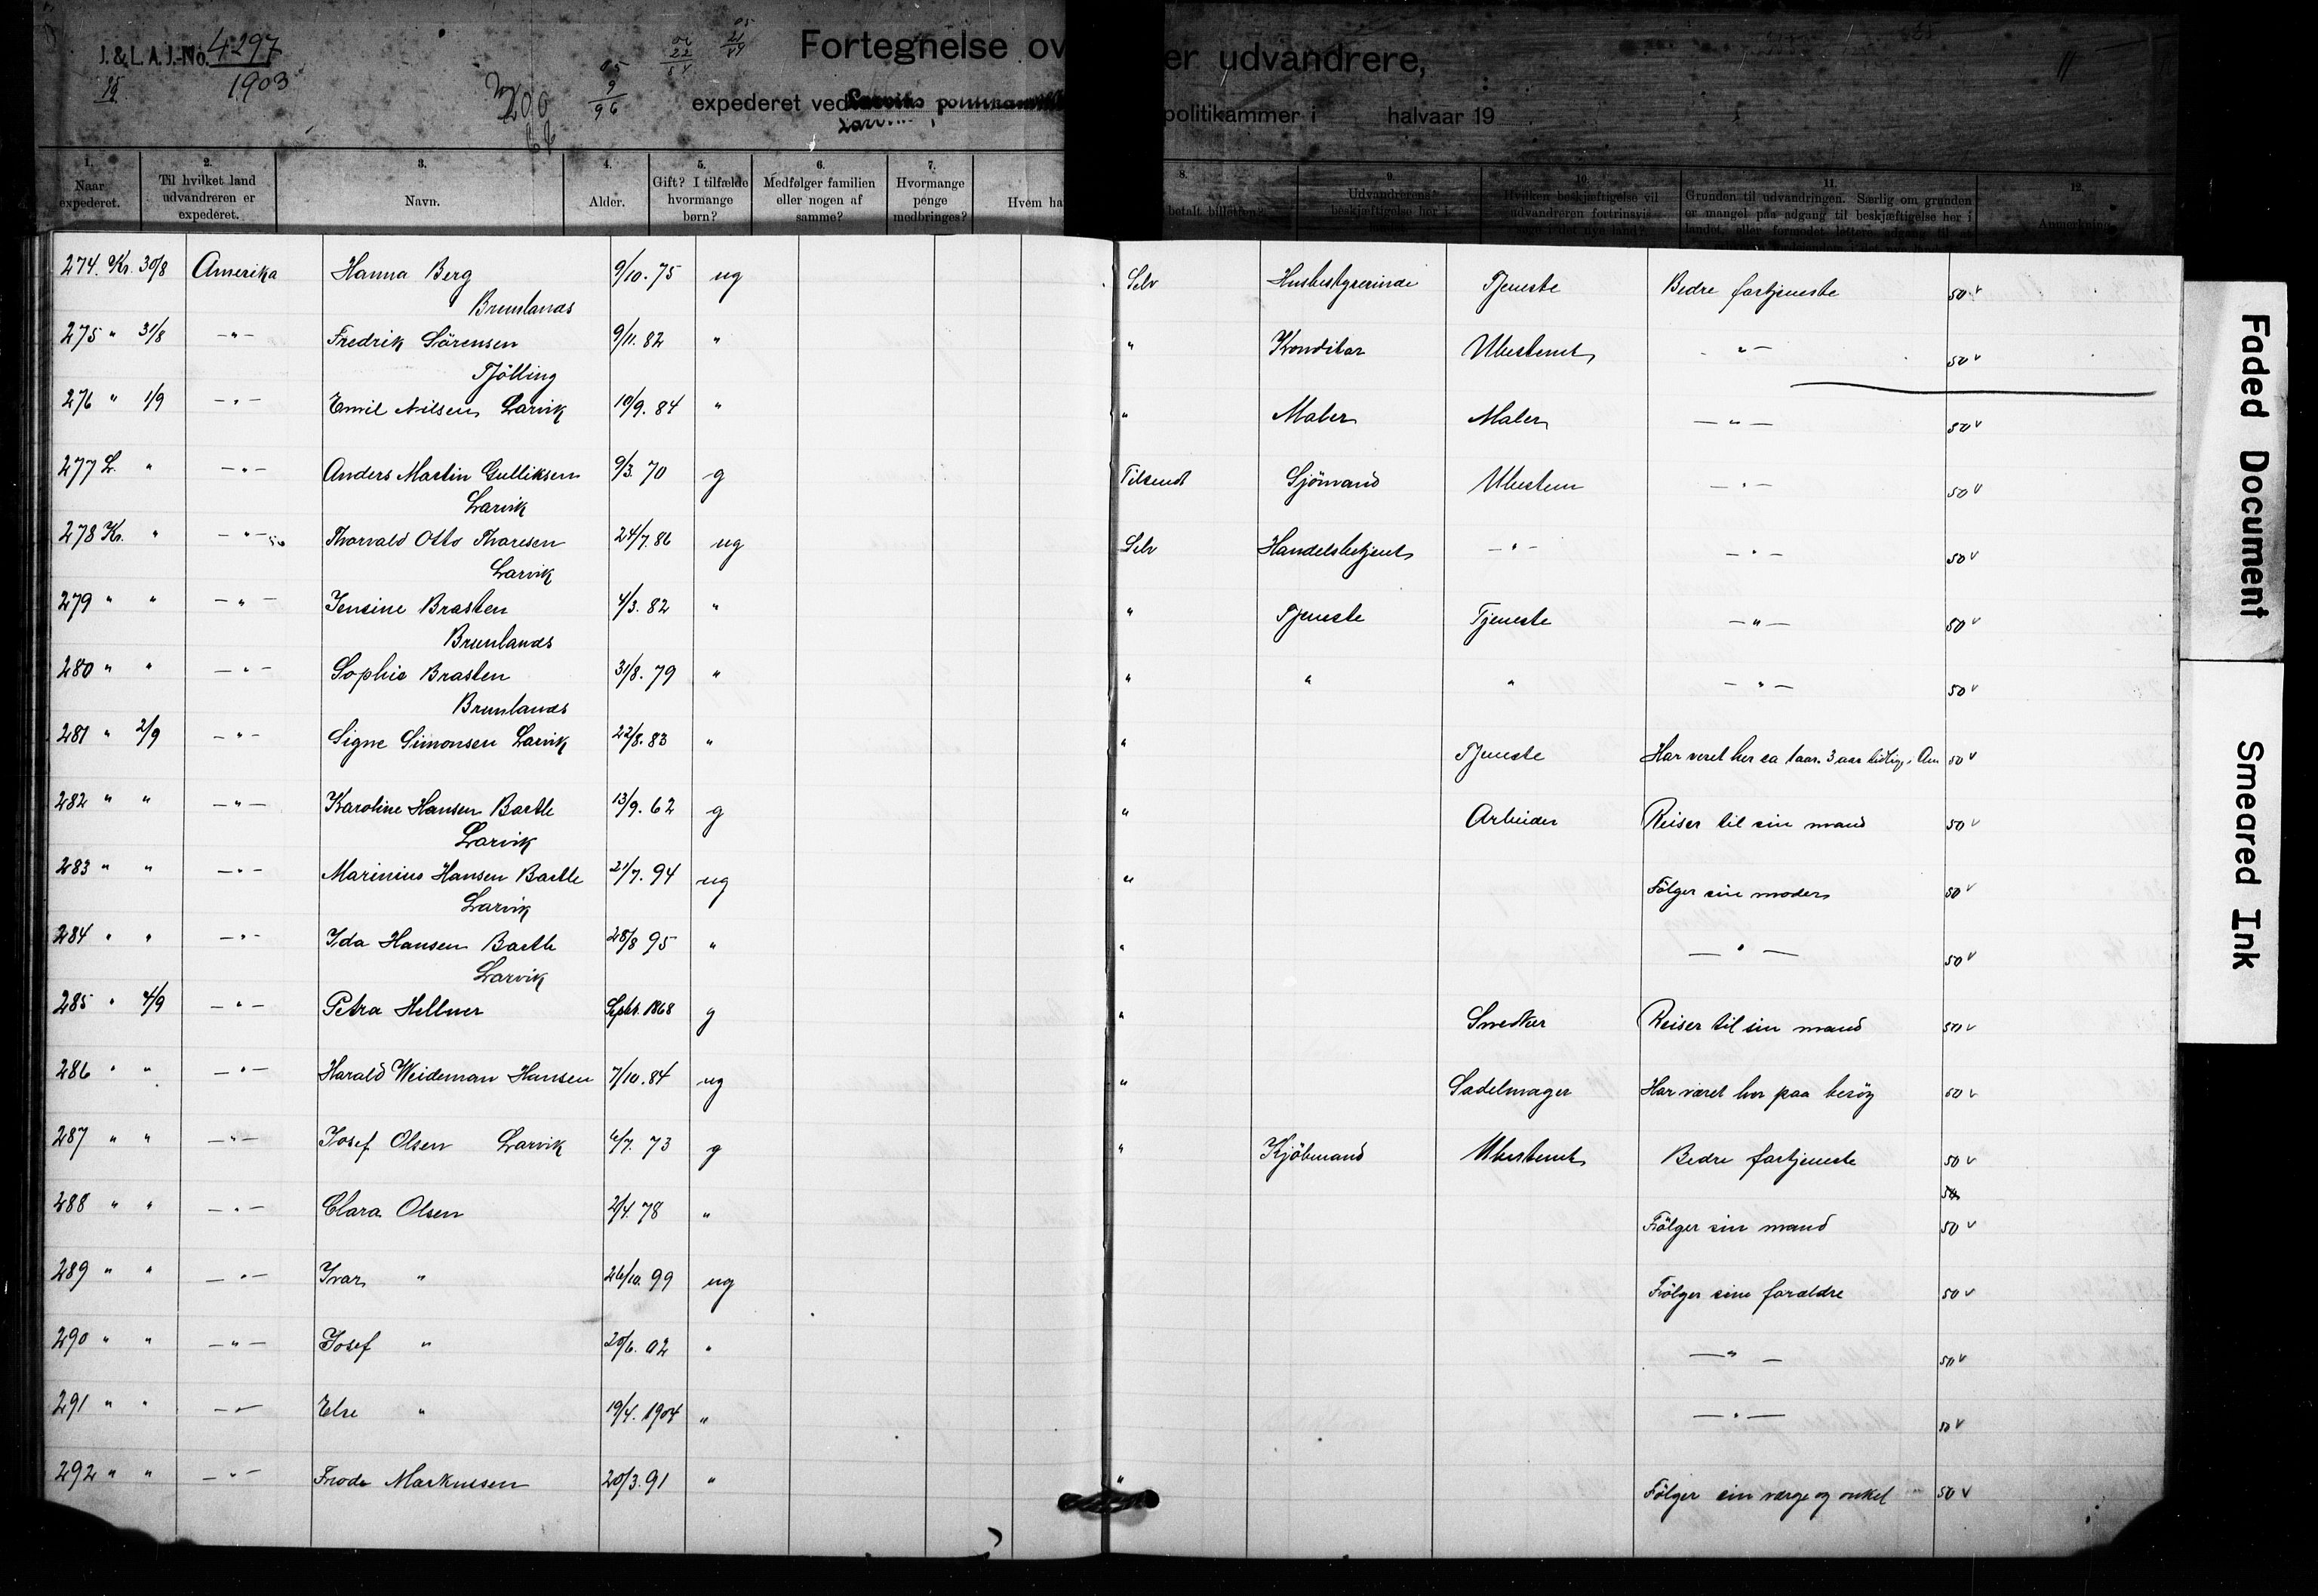 J. & L. A. J.-No. 4297
1903
200
Fortegnelse ov er udvandrere,
expederet ved politikammer i halvaar 19
1. Naar expederet.
2. Til hvilket land udvandreren er expederet.
3. Navn.
4. Alder.
5. Gift? I tilfælde hvormange børn?
6. Medfølger familien eller nogen af samme?
7. Hvormange penge medbringes?
8. Hvem ha betalt billetten?
9. Udvandrerens beskjæftigelse her i landet.
10. Hvilken beskjæftigelse vil udvandreren fortrinsvis søge i det nye land?
11. Grunden til udvandringen. Særlig om grunden er mangel paa adgang til beskjæftigelse her i
12. Anmerkning.
274. Kr. 30/8 Amerika Hanna Berg 9/10. 75 ug Selv Husbestyrerinde Tjeneste Bedre fortjeneste 50 v
Brunlands
275 " 31/8 -"- Fredrik Sörensen 9/11. 82 " " Konditor Ubestemt -"- 50 v
Tjölling
276 " 1/9 -"- Emil Nilsen Larvik 10/9. 84 " " Maler Maler -"- 50 v
277 L. " -"- Anders Martin Gulliksen 9/3. 70 g Tilsendt Sjömand Ubestem -"- 50 v
Larvik
278 Kr. " -"- Thorvald Otto Thoresen 24/7. 86 ug Selv Handelsbetjent -"- -"- 50 v
Larvik
279 " " -"- Jensine Brasten 4/3. 82 " " Tjeneste Tjeneste -"- 50 v
Brunlands
280 " " -"- Sophie Brasten 31/8. 79 " " " " -"- 50 v
Brunlands
281 " 2/9 -"- Signe Simonsen Larvik 22/8. 83 " " Tjeneste Har veret her ca 1 aar. 3 aar tidlig. i Am 50 v
282 " " -"- Karoline Hansen Bartle 13/9. 62 g " Arbeider Reiser til sin mand 50 v
Larvik
283 " " -"- Marinius Hansen Bartle 21/7. 94 ug " Fölger sin moder 50 v
Larvik
284 " " -"- Ida Hansen Bartle 28/8 95 " " -"- 50 v
Larvik
285 " 4/9 -"- Petra Hellner Septr. 1868 g " Snedker Reiser til sin mand 50 v
286 " " -"- Harald Weideman Hansen 7/10. 84 ug " Sadelmager Har været her paa besög 50 v
287 " " -"- Josef Olsen Larvik 6/7. 73 g " Kjöbmand Ubestemt Bedre fortjeneste 50 v
288 " " -"- Clara Olsen 2/4. 78 " Fölger sin mand 50 v
289 " " -"- Ivar " 26/10. 99 ug Fölger sine forældre 50 v
290 " " -"- Josef " 20/6. 02 " -"- 50 v
291 " " -"- Else " 19/4. 1904 " -"- 50 v
292 " " -"- Frode Markussen 20/3. 91 " " Fölger sin værge og onkel 50 v
Faded Document
Smeared Ink